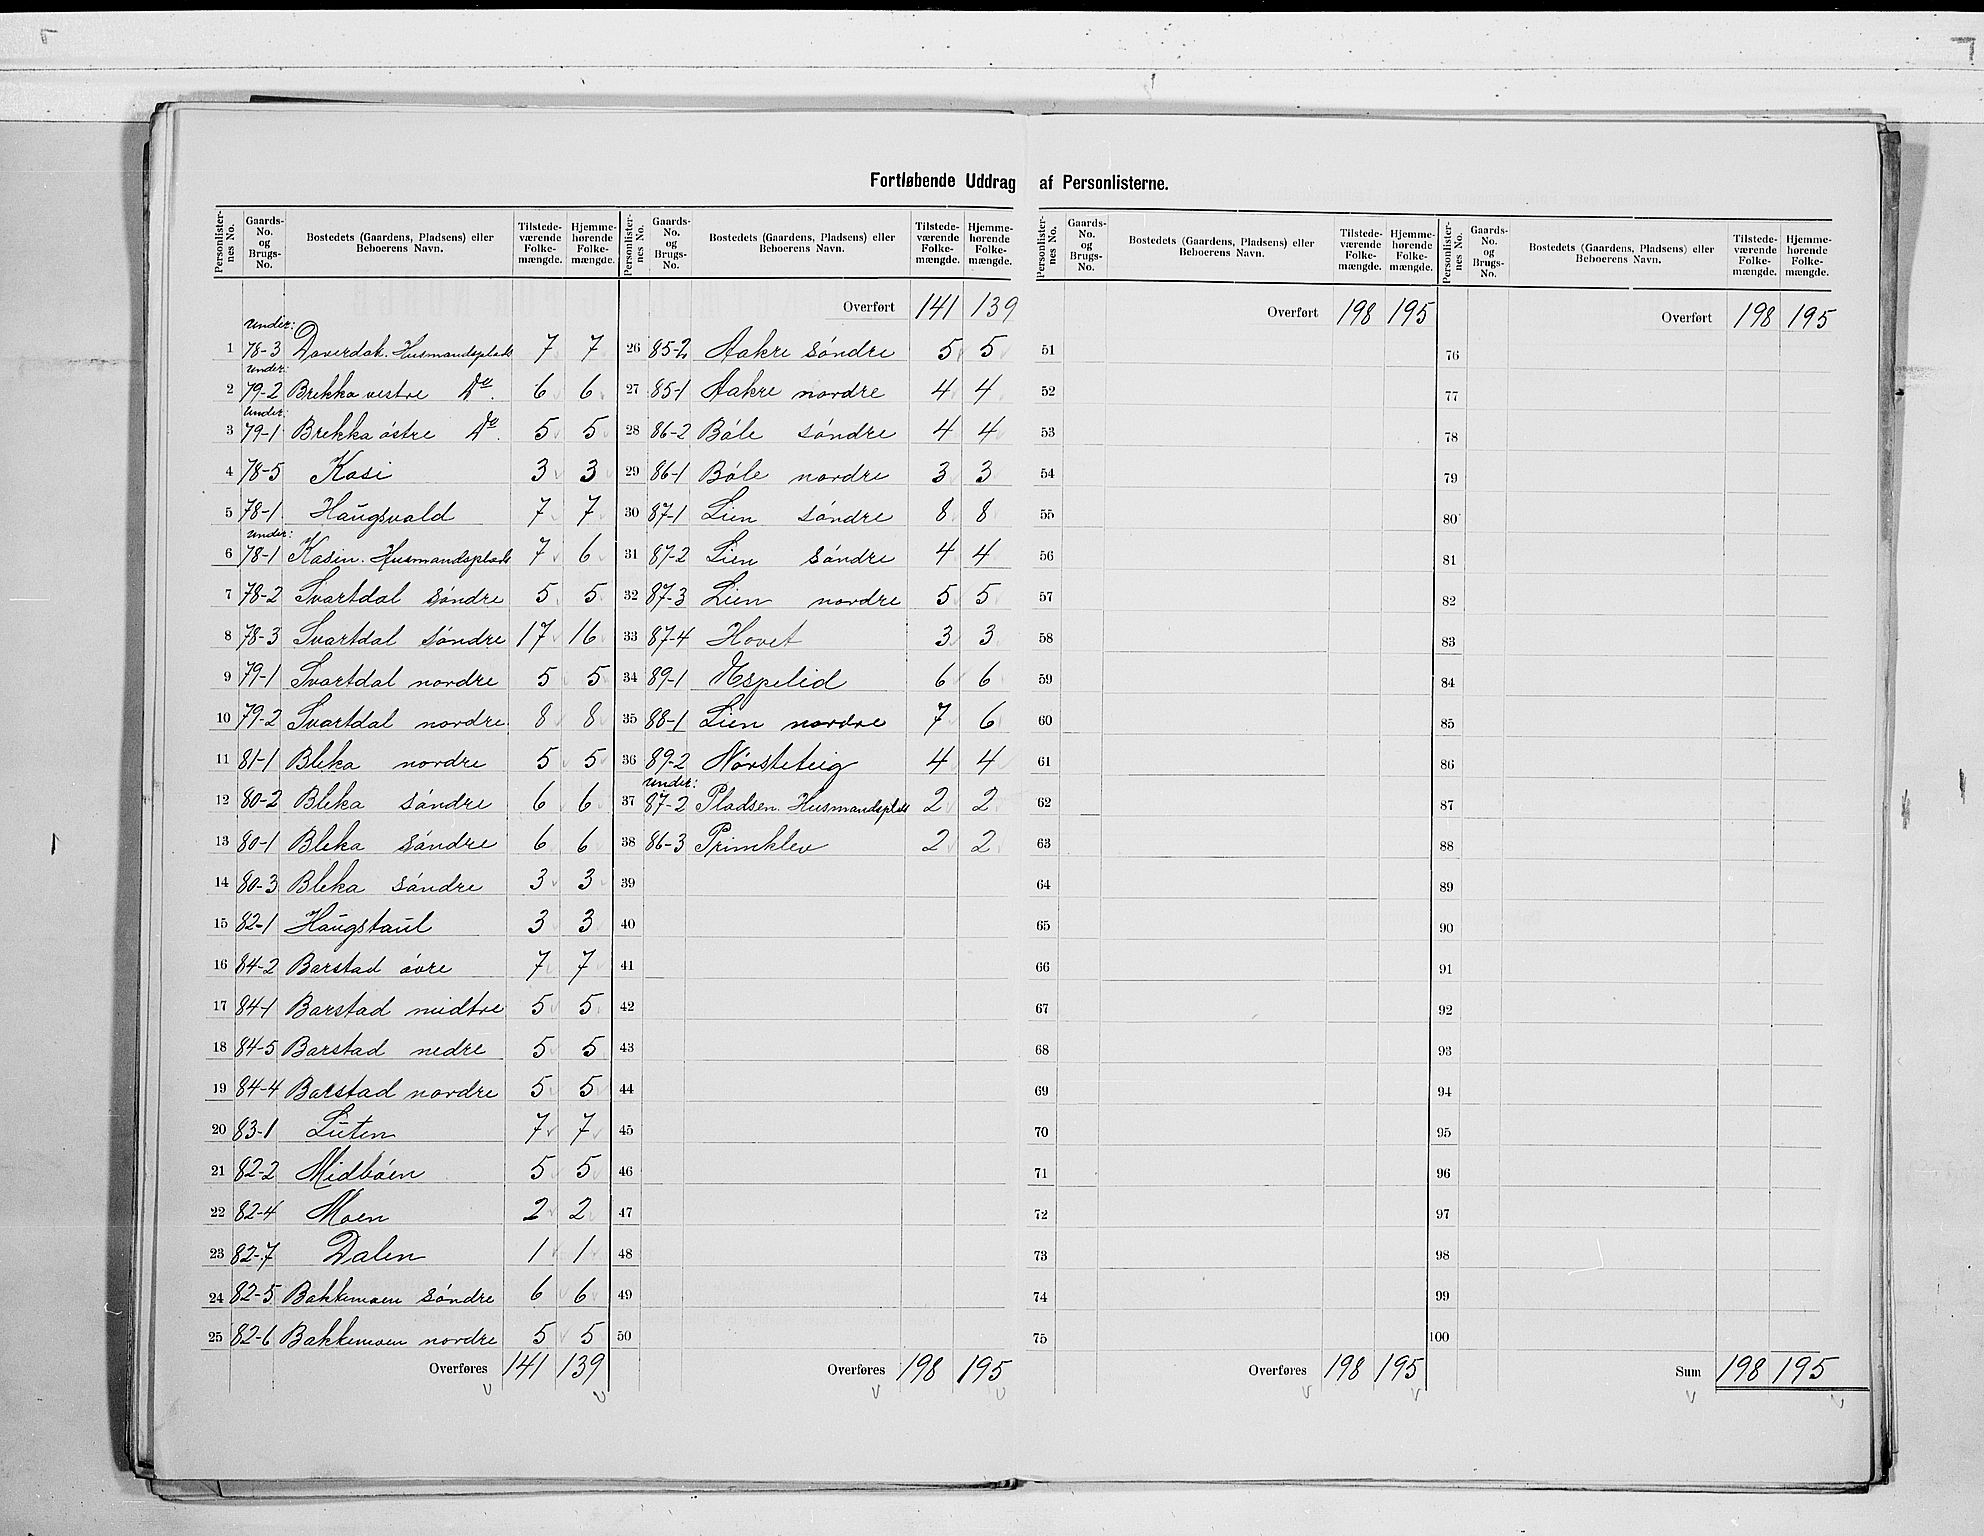 Fortløbende Uddrag af Personlisterne.
Personlister-nes No. | Gaards-No. og Brugs-No. | Bostedets (Gaardens, Pladsens) eller Beboerens Navn. | Tilstede-værende Folke-mængde. | Hjemme-hørende Folke-mængde.
under:
1 78-3 Husmandsplads 7 7
under:
2 79-2 Brekka vestre Do. 6 6
under:
3 79-1 Brekka østre Do. 5 5
4 78-5 Kasi 3 3
5 78-1 Haugsvald 7 7
under:
6 78-1 Kasin. Husmandsplads 7 6
7 78-2 Svartdal søndre 5 5
8 78-3 Svartdal søndre 17 16
9 79-1 Svartdal nordre 5 5
10 79-2 Svartdal nordre 8 8
11 81-1 Bleka nordre 5 5
12 80-2 Bleka søndre 6 6
13 80-1 Bleka søndre 6 6
14 80-3 Bleka søndre 3 3
15 82-1 Haugstaul 3 3
16 84-2 Barstad øvre 7 7
17 84-1 Barstad midtre 5 5
18 84-5 Barstad nedre 5 5
19 84-4 Barstad nordre 5 5
20 83-1 Luten 7 7
21 82-2 Midbøen 5 5
22 82-4 Moen 2 2
23 82-7 Dalen 1 1
24 82-5 Bakkemoen søndre 6 6
25 82-6 Bakkemoen nordre 5 5
Overføres 141 139
Personlister-nes No. | Gaards-No. og Brugs-No. | Bostedets (Gaardens, Pladsens) eller Beboerens Navn. | Tilstede-værende Folke-mængde. | Hjemme-hørende Folke-mængde.
Overført 141 139
26 85-2 Aakre søndre 5 5
27 85-1 Aakre nordre 4 4
28 86-2 Bøle søndre 4 4
29 86-1 Bøle nordre 3 3
30 87-1 Lien søndre 8 8
31 87-2 Lien søndre 4 4
32 87-3 Lien nordre 5 5
33 87-4 Hovet 3 3
34 89-1 Espelid 6 6
35 88-1 Lien nordre 7 6
36 89-2 Nørsteteig 4 4
under:
37 87-2 Pladsen. Husmandsplads 2 2
38 86-3 Primklev 2 2
39
40
41
42
43
44
45
46
47
48
49
50
Overføres 198 195
Personlister-nes No. | Gaards-No. og Brugs-No. | Bostedets (Gaardens, Pladsens) eller Beboerens Navn. | Tilstede-værende Folke-mængde. | Hjemme-hørende Folke-mængde.
Overført 198 195
51
52
53
54
55
56
57
58
59
60
61
62
63
64
65
66
67
68
69
70
71
72
73
74
75
Overføres 198 195
Personlister-nes No. | Gaards-No. og Brugs-No. | Bostedets (Gaardens, Pladsens) eller Beboerens Navn. | Tilstede-værende Folke-mængde. | Hjemme-hørende Folke-mængde.
Overført 198 195
76
77
78
79
80
81
82
83
84
85
86
87
88
89
90
91
92
93
94
95
96
97
98
99
100
Sum 198 195